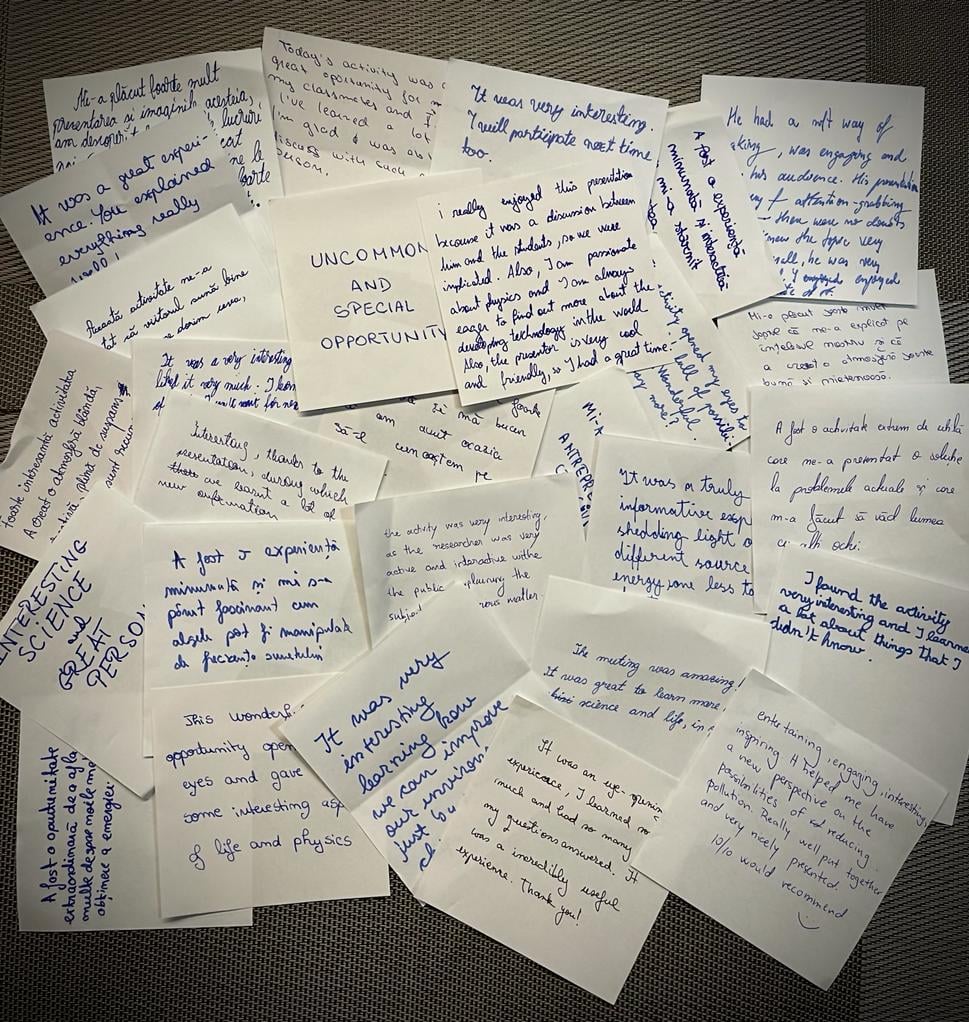 Mi-a plăcut foarte mult
prezentarea si imaginile acesteia,
am descoperit
lucruri
Today's activity was a
great oportunity for m
my classmates and I
I've learned a lot
I'm glad I was ab
discuss with such
person.
It was very interesting.
I will participate next time
too.
A fost o experiență
minunată și interactivă
mi-a stârnit
He had a
king, was engaging and
his audience. His presentation
of attention-grabbing
there were no doubts
knew the topic very
all, he was very
engaged
It was a great experi-
ence. You explained
everything really
well!
UNCOMMON
AND
SPECIAL
OPPORTUNITY
i really enjoyed this presentation
because it was a discussion between
him and the students, so we were
implicated. Also, I am passionate
about physics and I am always
eager to find out more about the
developing technology in the world
Also, the presentor is very cool
and friendly, so I had a great time!
Această activitate me-a
tat că viitorul sună bine
e dorim
tivity opened my eyes to
full of possibili
Wonderful.
more?
Mi-a plăcut foarte mult
foarte că me-a explicat pe
înțelesul nostru și că
a creat o atmosferă foarte
bună și prietenoasă.
Foarte interesantă activitatea
A creat o atmosferă blândă,
plină de suspans
It was a very interesting
liked it very much. I
of
Interesting, thanks to the
presentation, during which
we learnt a lot of
new information
foarte
și mă bucur
am avut ocazia
să-l cunoaștem pe
MI-A
A fost o activitate extrem de utilă
care me-a prezentat o soluție
la problemele actuale și care
m-a făcut să văd lumea
cu alți ochi.
It was a truly
informative exp
shedding light o
different source
energy, one less to
the activity was very interesting,
as the researcher was very
active and interactive withe
the public plaining the
subject rous matter.
INTERESTING
SCIENCE
and
GREAT
PERSO
A fost o experiență
minunată și mi s-a
părut fascinant cum
algele pot fi manipulate
de frecvența sunetului
I found the activity
very interesting and I learne
a lot about things that I
didn't know.
The meeting was amazing!
It was great to learn more
science and life, in
This wonderf
opportunity open
eyes and gave
some interesting asp
of life and physics
It was very
interesting
learning how
we can improve
our environ
just by
It was an eye-opening
experience, I learned so
much and had so many
my questions answered. It
was a incredibly useful
experience. Thank you!
entertaining, engaging, interesting,
inspiring It helped me have
a new perspective on the
possibilities of reducing
pollution. Really well put together
and very nicely presented.
10/10 would recommend
A fost o oportunitate
extraordinară de a afla
multe despre modele
obținere a energiei